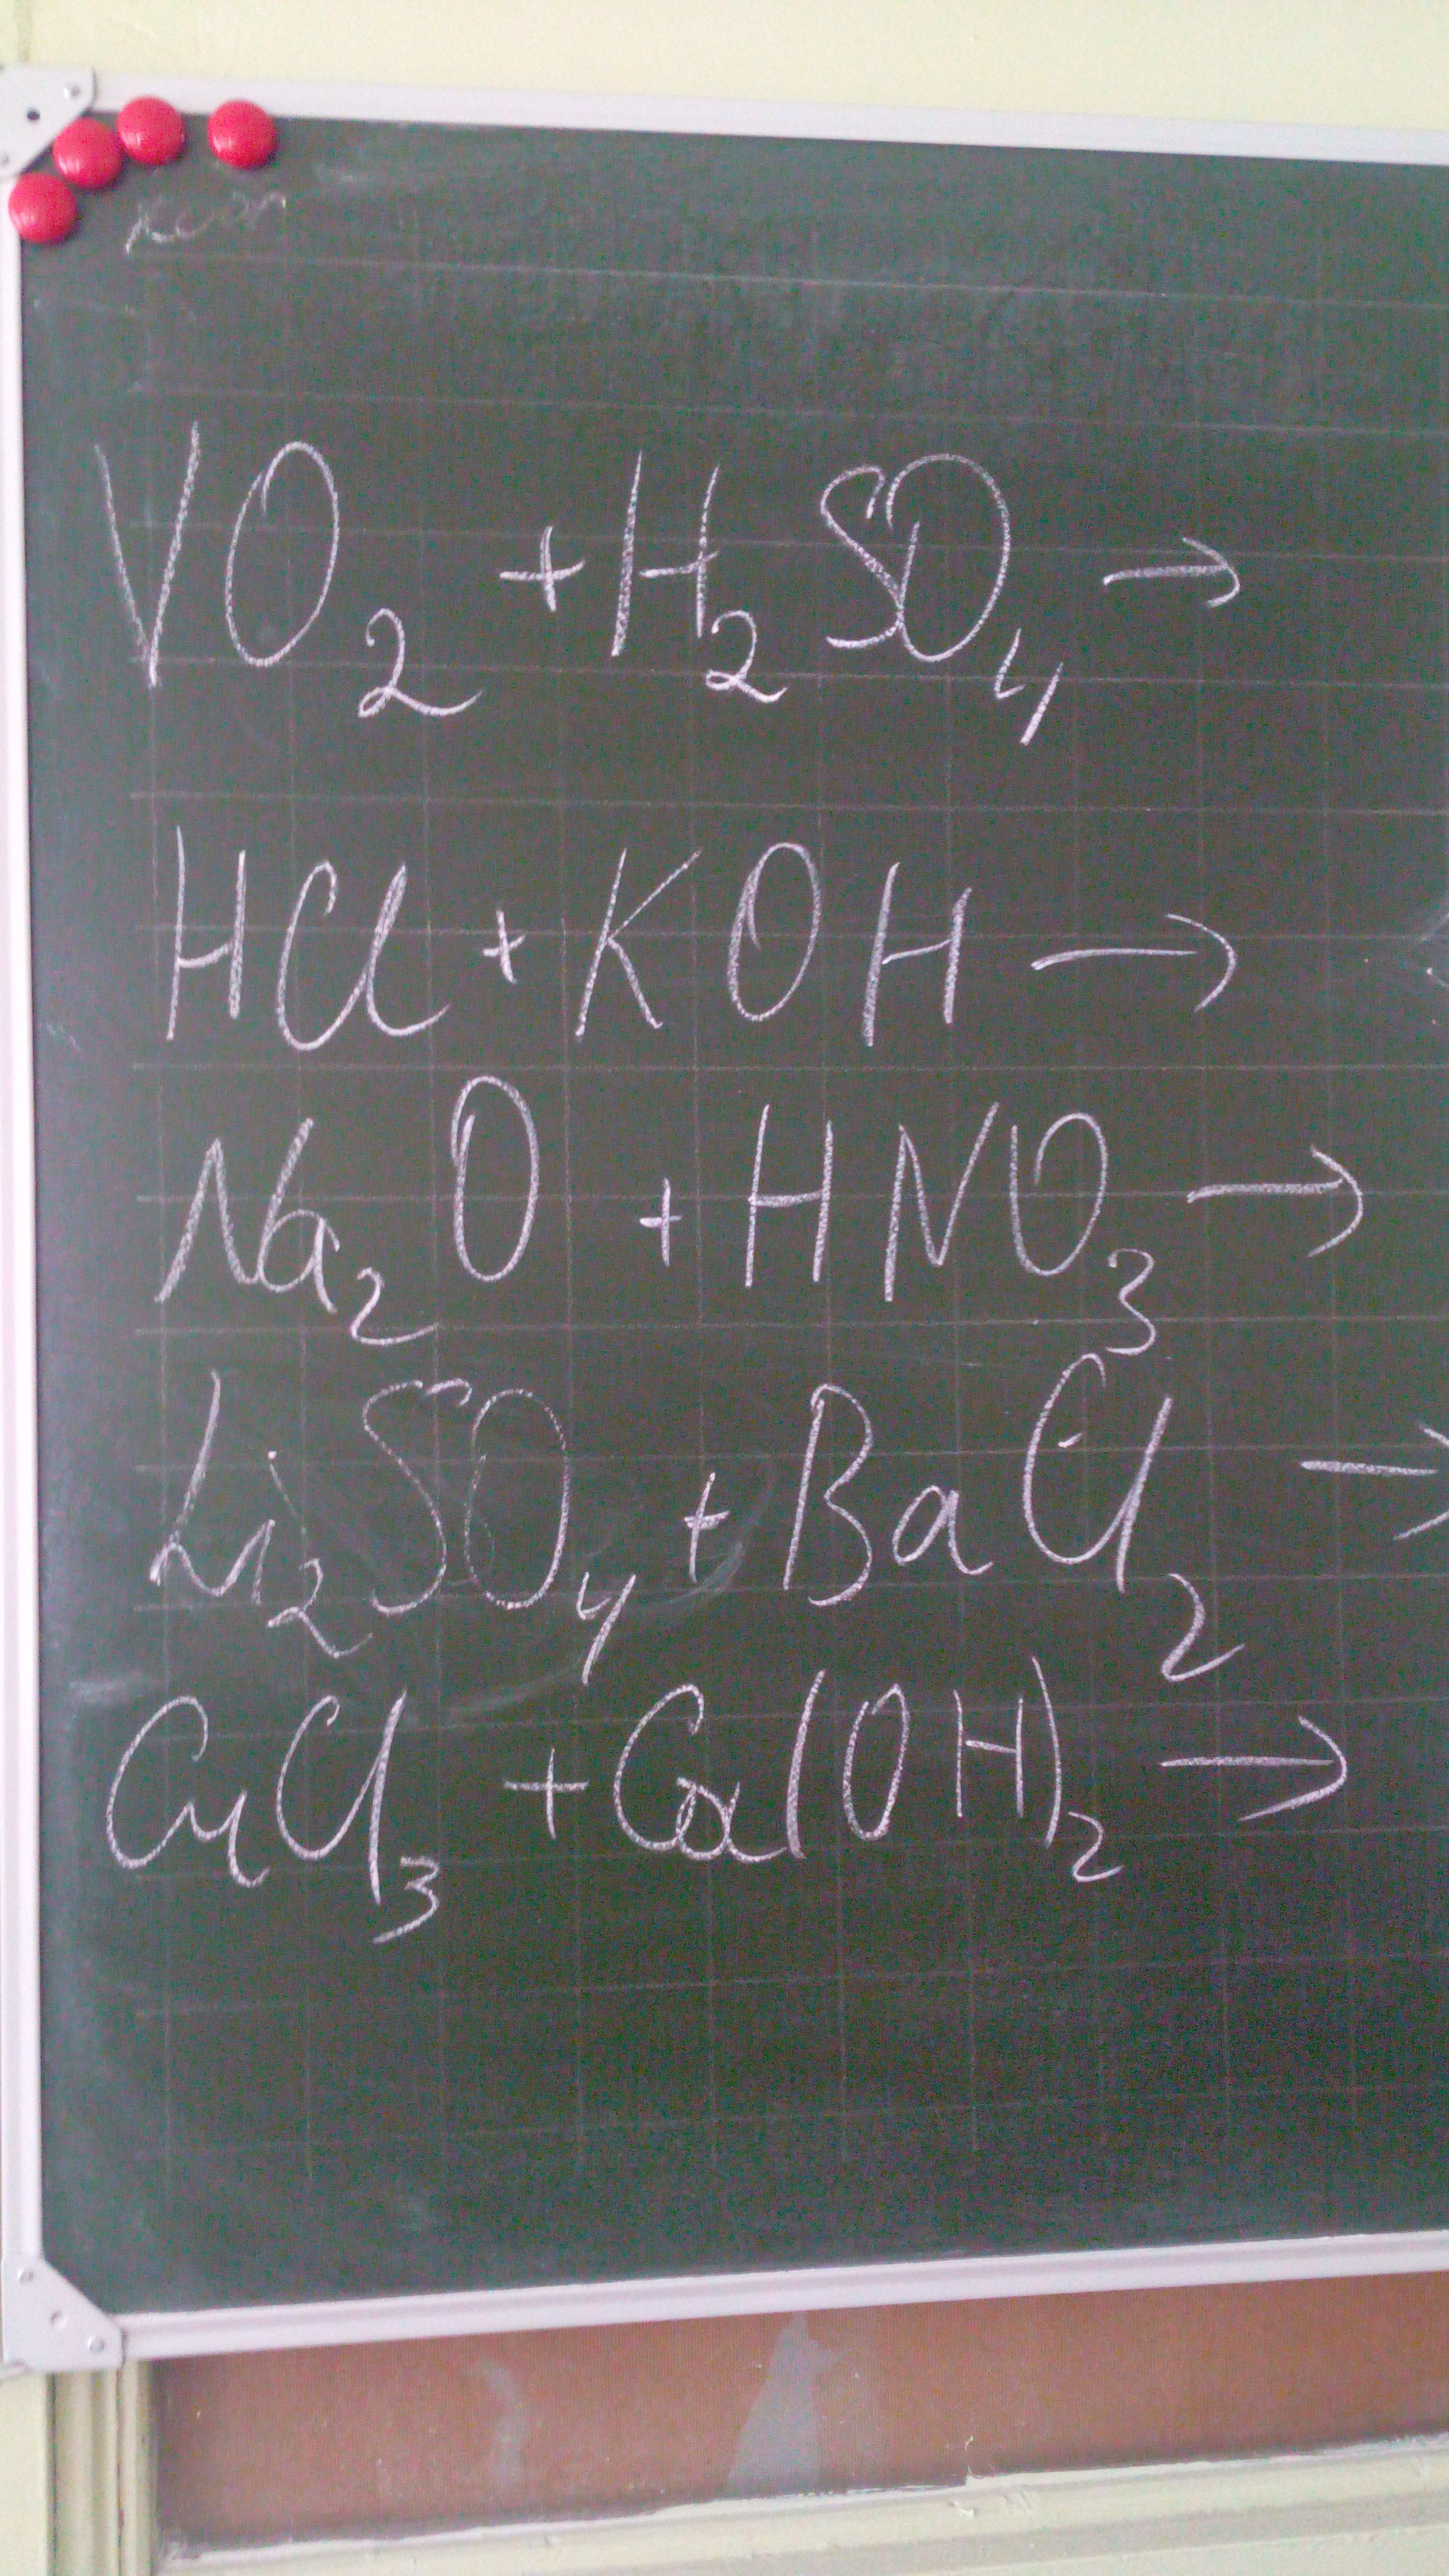 VO₂ + H₂SO₄ →
HCl + KOH →
Na₂O + HNO₃ →
Li₂SO₄ + BaCl₂ →
CuCl₃ + Ca(OH)₂ →